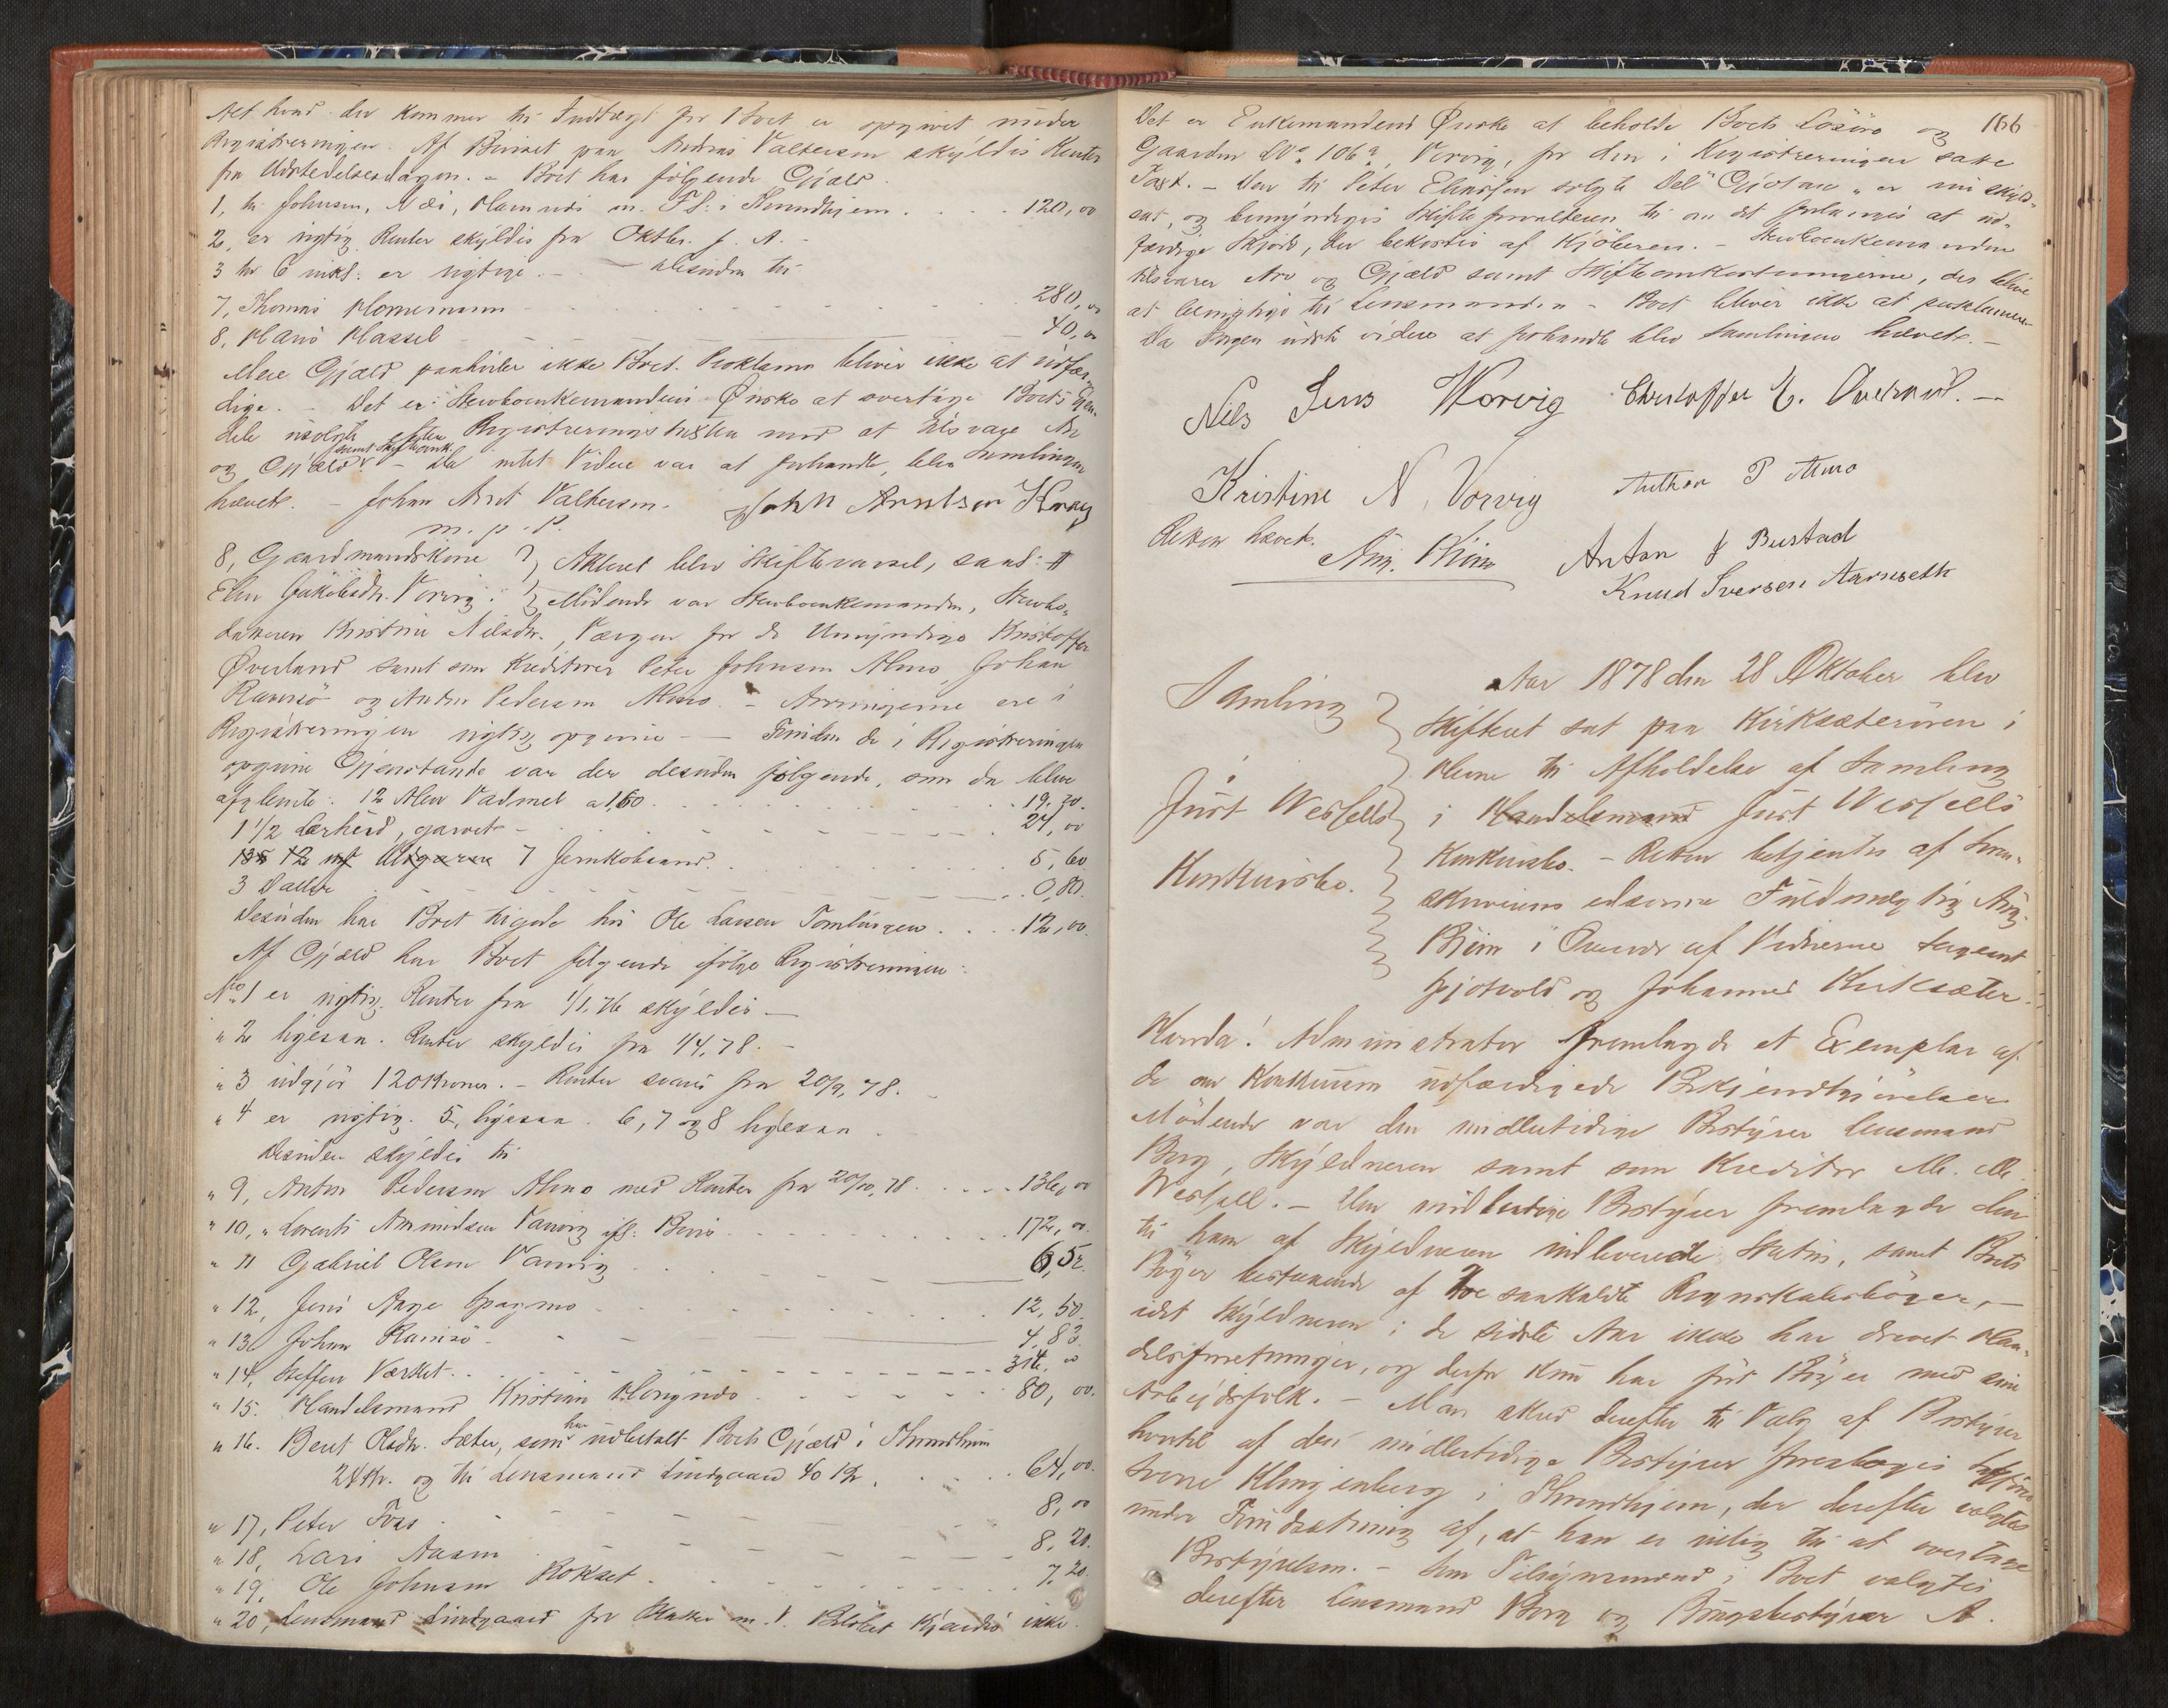 Alt hvad der kommer til Indtægt for Boet er opgivet under
Registreringen. Af Beviset paa Andreas Valtersen skyldes Renter
fra Udstedelsesdagen. – Boet har følgende Gjæld.
1, til Johnsen, i Throndhjem . . . . 120,00
2, er rigtig Renter skyldes fra Oktbr. f. A. –
3 til 6 inkl. er rigtige. – desuden til
7, Thomas Hornemann . . . 280,00
8, Hans Hassel 40,00
Mere Gjæld paahviler ikke Boet. Proklama bliver ikke at udfær-
dige. – Det er Sterboenkemandens Ønske at overtage Boets Ejen-
dele usolgte efter Registreringstaxten mod at tilsvare Arv
og Gjæld samt Skifteomk. – Da intet Videre var at forhandle, blev Samlingen
hævet. – Johan Arnt Valtersen. John Arntson
m. p. P.
8, Gaardmandskone } Akteret blev Skiftevarsel, saal: #
Elen Jakobsdtr. Vorvig. } Mødende var Sterboenkemanden, Sterbo-
datteren Kristine Nilsdtr., Værgen for de Umyndige Kristoffer
Øverland samt som Kreditorer Peter Johnsen Almo, Johan
Ramsø og Anton Pedersen Almo. – Arvingerne ere i
Registreringen rigtig opgivne – Foruden de i Registreringen
opgivne Gjenstande var der desuden følgende, som da blev
afglemte: 12 Alen Vadmel a 1,60 . . . 19,20.
1 1/2 Lærhud, garvet – . . . 24,00
7 Jernkobaand . . . 5,60
3 . . . 0,80.
Desuden har Boet tilgode hos Ole Larsen Tømburgen . . . . 12,00.
Af Gjæld har Boet følgende ifølge Registreringen:
No 1 er rigtig. Renter fra 1/1.76 skyldes –
" 2 ligesaa. Renter skyldes fra 1/4.78. –
" 3 udgjør 120 Kroner. – Renter svares fra 20/9.78. –
" 4 er rigtig. 5, ligesaa. 6, 7 og 8 ligesaa –
Desuden skyldes til
" 9, Anton Pedersen Almo med Renter fra 20/10.78 . . . . 136,00
" 10, " Lorents Amundsen Vaavig ifl: Bevis . . . 172,00.
" 11 Gabriel Olsen Vaavig . . . 6,52.
" 12, Jens Aage Spagmo . . . 12,50.
" 13 Johan Ramsø – 4,83.
" 14, Steffen Værket . . . 00
" 15. Handelsmand Kristian . . . 80,00.
" 16. Beret Olsdtr. Sæter, som har udbetalt Boets Gjæld i Throndhjem
24 Kr. og til Lensmand Lindgaard 40 Kr. . . . 64,00.
" 17, Peter Foss . . . 8,00
" 18, Lars Aasen . . . 8,20.
" 19, Ole Johnsen Rokset . . . 7,20
" 20, Lensmand Lindgaard for Skatter m. V. Beløbet kjendes ikke.
166
Det er Enkemandens Ønske at beholde Boets Løsøre og
Gaarden LNo 106a, Vorvig, for den i Registreringen satte
Taxt. – Den til Peter Eliassen solgte Del "Gjøtan" er nu skyld-
sat, og bemyndiges Skifteforvalteren til om det forlanges at ud-
færdige Skjøde, der bekostes af Kjøberen. – Sterboenkemanden
tilsvarer Arv og Gjæld samt Skifteomkostningerne, der blive
at berigtige til Lensmanden – Boet bliver ikke at proklamere
Da Ingen indstævnte videre at forhandle blev Samlingen hævet. –
Nils Jens Worvig Christoffer E. Øverland. –
Kristine N. Vorvig Anthon P Almo
Retten hævet.
Aug. Bjørn Anton J Bustad
Knud Iversen Aarnseth
Samling
i
Just Wessells
Konkursbo.
Aar 1878 den 28 Oktober blev
Skifteret sat paa Kirksæterøren i
Hevne til Afholdelse af Samling
i Handelsmand Just Wessells
Konkursbo. – Retten betjentes af Soren-
skriverens edsvorne Fuldmægtig Aug.
Bjørn i Overvær af Vidnerne Sergeant
Fjotvold og Johannes Kirksæter. –
Hvorda! Administrator fremlagde et Exemplar af
de om Konkursen udfærdigede Bekjendtgjørelser.
Mødende var den midlertidige Bestyrer Lensmand
Berg, Skyldneren samt som Kreditor M. M.
Wessell. – Den midlertidige Bestyrer fremlagde den
til ham af Skyldneren indleverede Status, samt Boets
Bøger bestaaende af Tre saakaldte Regnskabsbøger, –
idet Skyldneren i de sidste Aar ikke har drevet Han-
delsforretninger, og derfor kun har ført Bøger med sine
Arbejdsfolk. – Man skred derefter til Valg af Bestyrer
hvortil af den midlertidige Bestyrer foresloges
Klingenberg i Throndhjem, der derefter valgtes
under Forudsætning af, at han er villig til at overtage
Bestyrelsen. – Som Tilsynsmænd i Boet valgtes
derefter Lensmand Berg og Brugsbestyrer A.